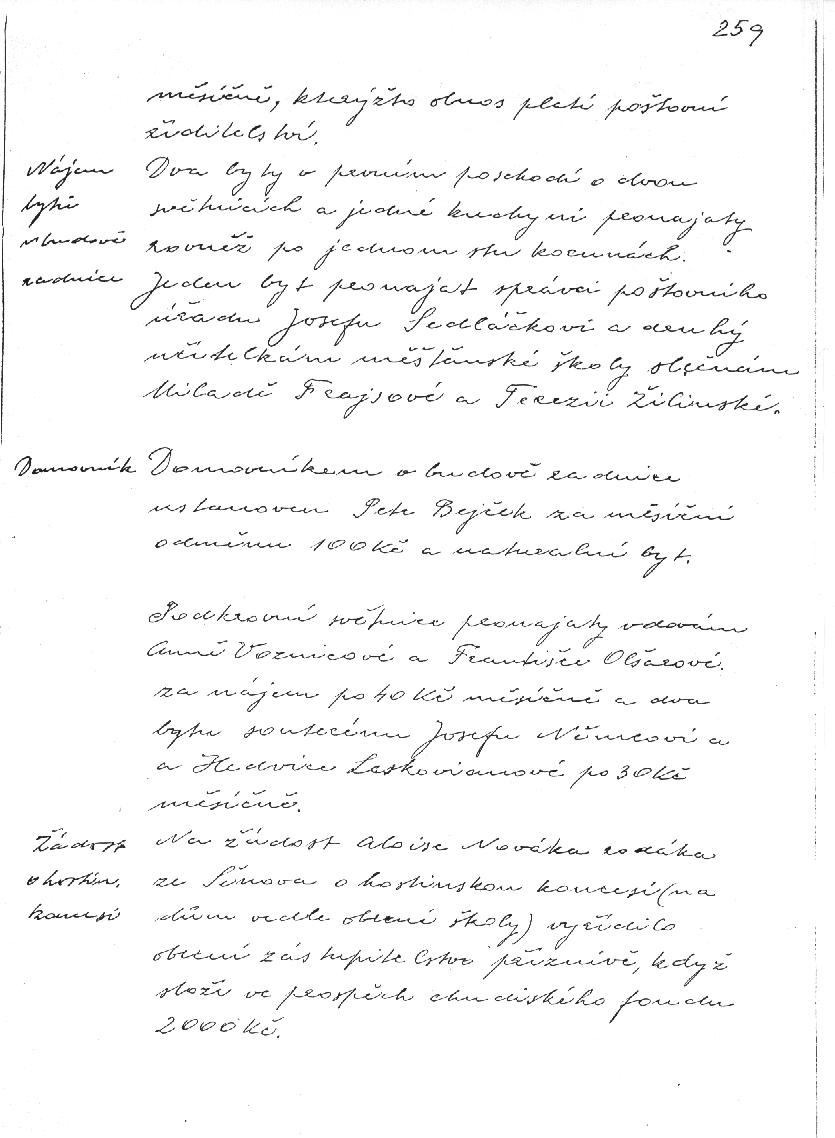 259
měsíčně, kterýžto obnos platí poštovní
ředitelství.
Nájem
bytů
v budově
radnice
Dva byty v prvním poschodí o dvou
světnicích a jedné kuchyni pronajaty
rovněž po jednom stu korunách.
Jeden byt pronajat správci poštovního
úřadu Josefu Sedláčkovi a druhý
učitelkám měšťanské školy slečnám
Miladě Frajsové a Terezii Žilinské.
Domovník
Domovníkem v budově radnice
ustanoven Petr Bejček za měsíční
odměnu 100 Kč a naturalní byt.
Podkrovní světnice pronajaty vdovám
Anně Voznicové a Františce Olšarové.
za nájem po 40 Kč měsíčně a dva
byty souterénu Josefu Němcovi a
a Hedvice Leskovianové po 30 Kč
měsíčně.
Žádost
o hostin.
koncesi
Na žádost Aloise Nováka rodáka
ze Šenova o hostinskou koncesi (na
dům vedle obecní školy) vyřídilo
obecní zastupitelstvo příznivě, když
složí ve prospěch chudinského fondu
2000 Kč.